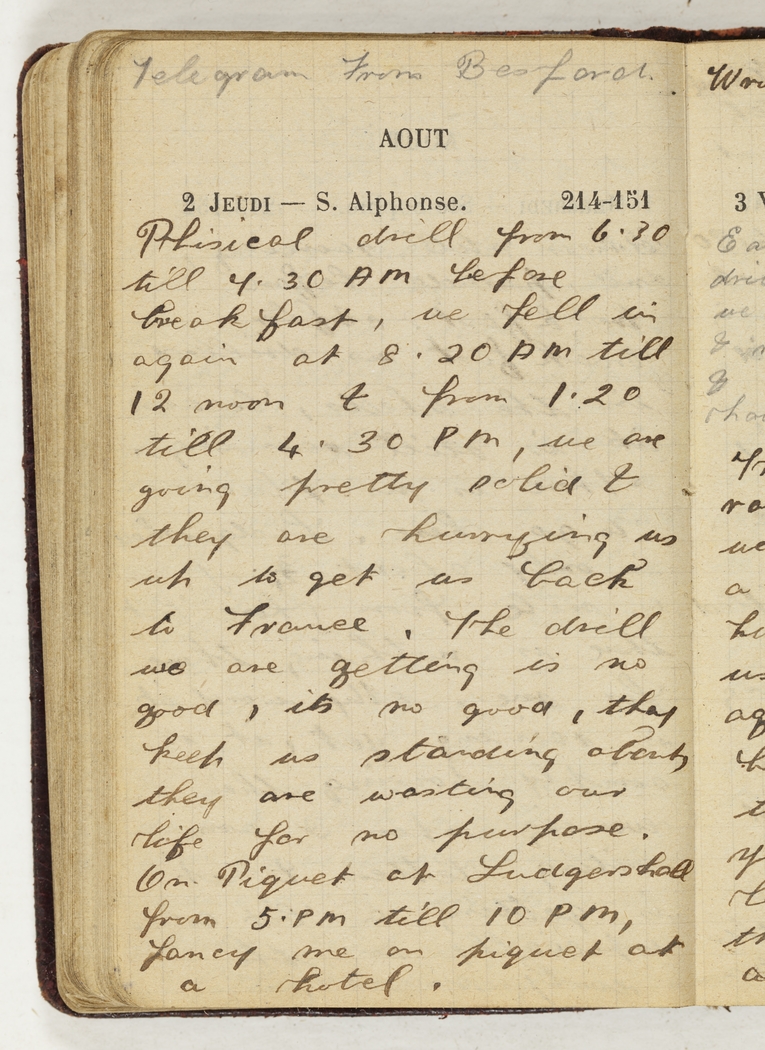 Telegram From Besford.
AOUT
2 JEUDI — S. Alphonse. 214-151
Phisical drill from 6.30
till 7.30 AM before
breakfast, we fell in
again at 8.20 AM till
12 noon & from 1.20
till 4.30 PM, we are
going pretty solid &
they are hurrying us
up to get us back
to France. The drill
we are getting is no
good, its no good, they
keep us standing about,
they are wasting our
life for no purpose.
On Piquet at Ludgershall
from 5.PM till 10 PM,
fancy me on piquet at
a hotel.
3